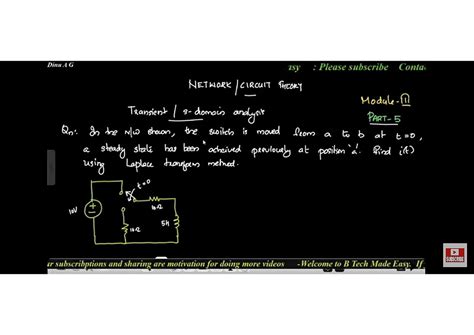 Dinu A G
asy : Please subscribe Conta
NETWORK / CIRCUIT THEORY
Module-II
Transient / s-domain analysis
PART-5
Qn: In the N/W shown, the switch is moved from a to b at t=0,
a steady state has been acheived previously at position 'a'. Find i(t)
using Laplace transform method.
t=0
10V
10Ω
10Ω
5H
SUBSCRIBE
ur subscribptions and sharing are motivation for doing more videos -Welcome to B Tech Made Easy. If